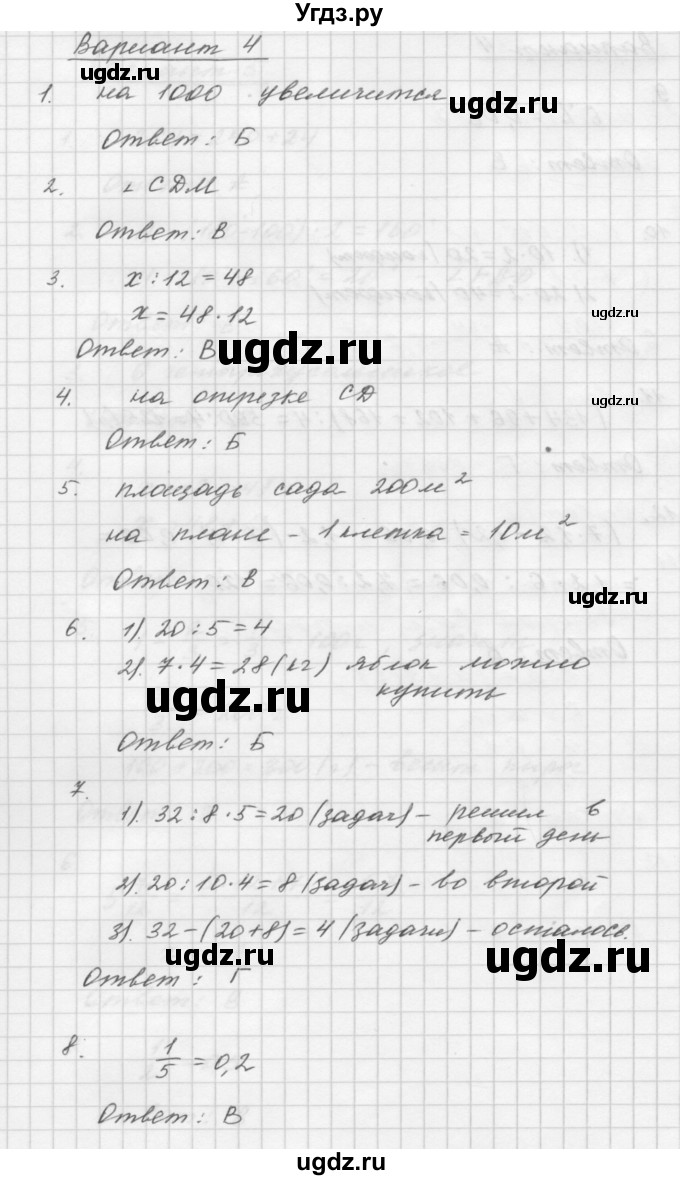 Угдз.ру
Вариант 4
ugdz.ru
1. на 1000 увеличится
ugdz.ru
Ответ: Б
2. ∠ СДМ
Ответ: В
3. x : 12 = 48
x = 48 · 12
ugdz.ru
Ответ: В
ugdz.ru
4. на отрезке СД
ugdz.ru
Ответ: Б
5. площадь сада 200м²
на плане – 1 клетка = 10м²
Ответ: В
ugdz.ru
6. 1). 20 : 5 = 4
2). 7 · 4 = 28 (кг) яблок можно
купить
ugdz.ru
Ответ: Б
7.
1). 32 : 8 · 5 = 20 (задач) – решил в
первый день
2). 20 : 10 · 4 = 8 (задач) – во второй
3). 32 – (20 + 8) = 4 (задачи) – осталось.
ugdz.ru
Ответ: Г
8. 1/5 = 0,2
Ответ: В
ugdz.ru